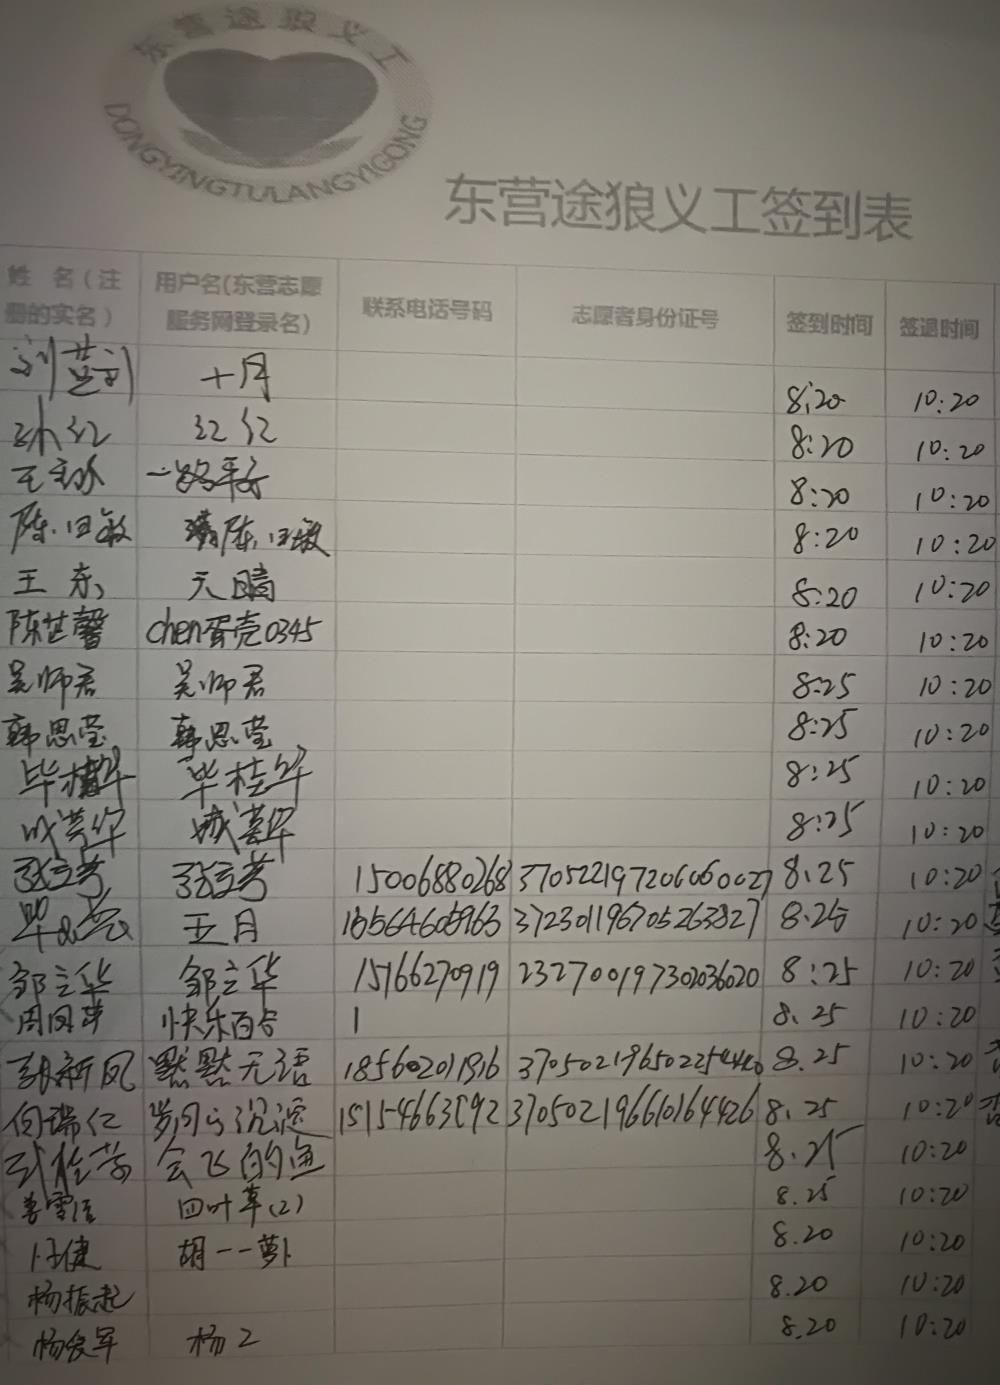 东营途狼义工
DONGYINGTULANGYIGONG
东营途狼义工签到表
姓 名（注册的实名） 用户名(东营志愿服务网登录名) 联系电话号码 志愿者身份证号 签到时间 签退时间
十月 8:20 10:20
孙红 红红 8:20 10:20
一路平安 8:20 10:20
陈 敏 陈 敏 8:20 10:20
王东 天晴 8:20 10:20
陈芷馨 chen蛋壳0345 8:20 10:20
吴师君 吴师君 8:25 10:20
韩思莹 韩思莹 8:25 10:20
毕桂华 毕桂华 8:25 10:20
8:25 10:20
张立芳 张立芳 15006880268 8.25 10:20
五月 372301196705263827 8.25 10:20
邹立华 邹立华 15166270919 232700197302036020 8:25 10:20
周凤萍 快乐百合 1 8.25 10:20
胡新凤 默默无语 8.25 10:20
向瑞仁 370502196610164426 8.25 10:20
会飞的鱼 8.25 10:20
姜雪 四叶草(2) 8.25 10:20
任健 胡一一萝卜 8.20 10:20
杨振起 8.20 10:20
杨爱军 杨2 8.20 10:20